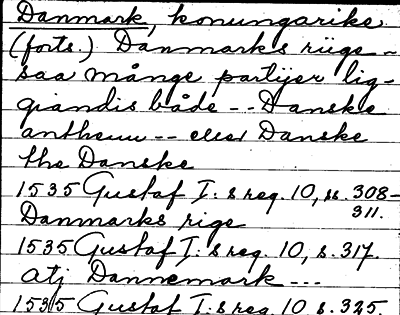 Danmark, konungarike
(forts.) Danmarks riige --
saa månge partijer lig-
giandis både -- Danske
anthenn -- eller Danske
the Danske
1535 Gustaf I:s reg. 10, ss. 308-
311.
Danmarks rige
1535 Gustaf I:s reg. 10, s. 317.
atj Dannemark ---
1535 Gustaf I:s reg. 10 s. 325.